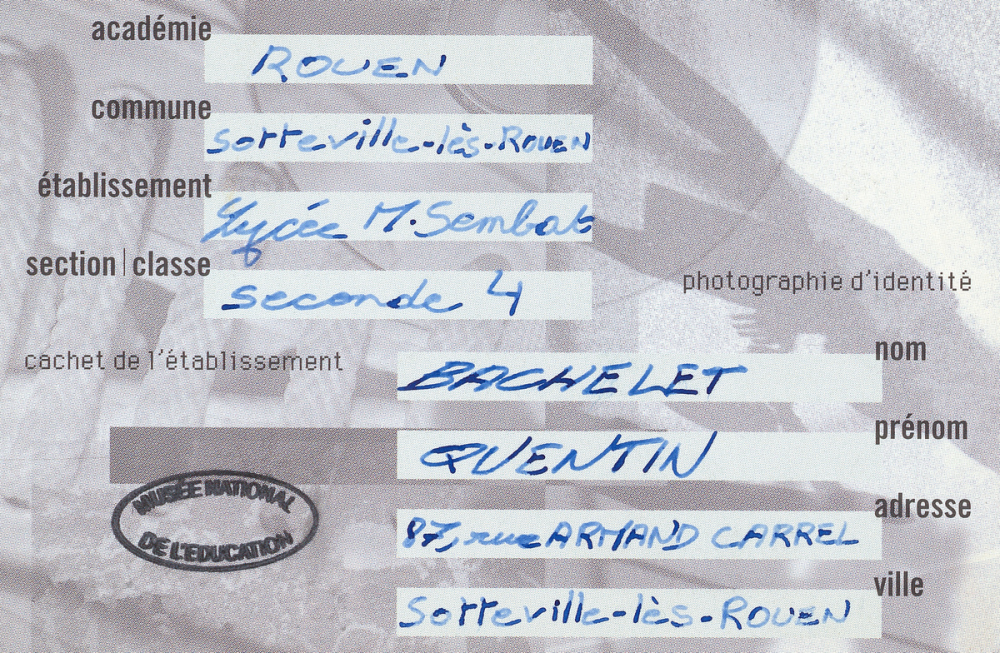 académie
ROUEN
commune
Sotteville-lès-ROUEN
établissement
Lycée M. Sembat
section | classe
seconde 4
photographie d'identité
cachet de l'établissement
nom
BACHELET
prénom
QUENTIN
adresse
87, rue ARMAND CARREL
ville
Sotteville-lès-ROUEN
MUSÉE NATIONAL
DE L'EDUCATION